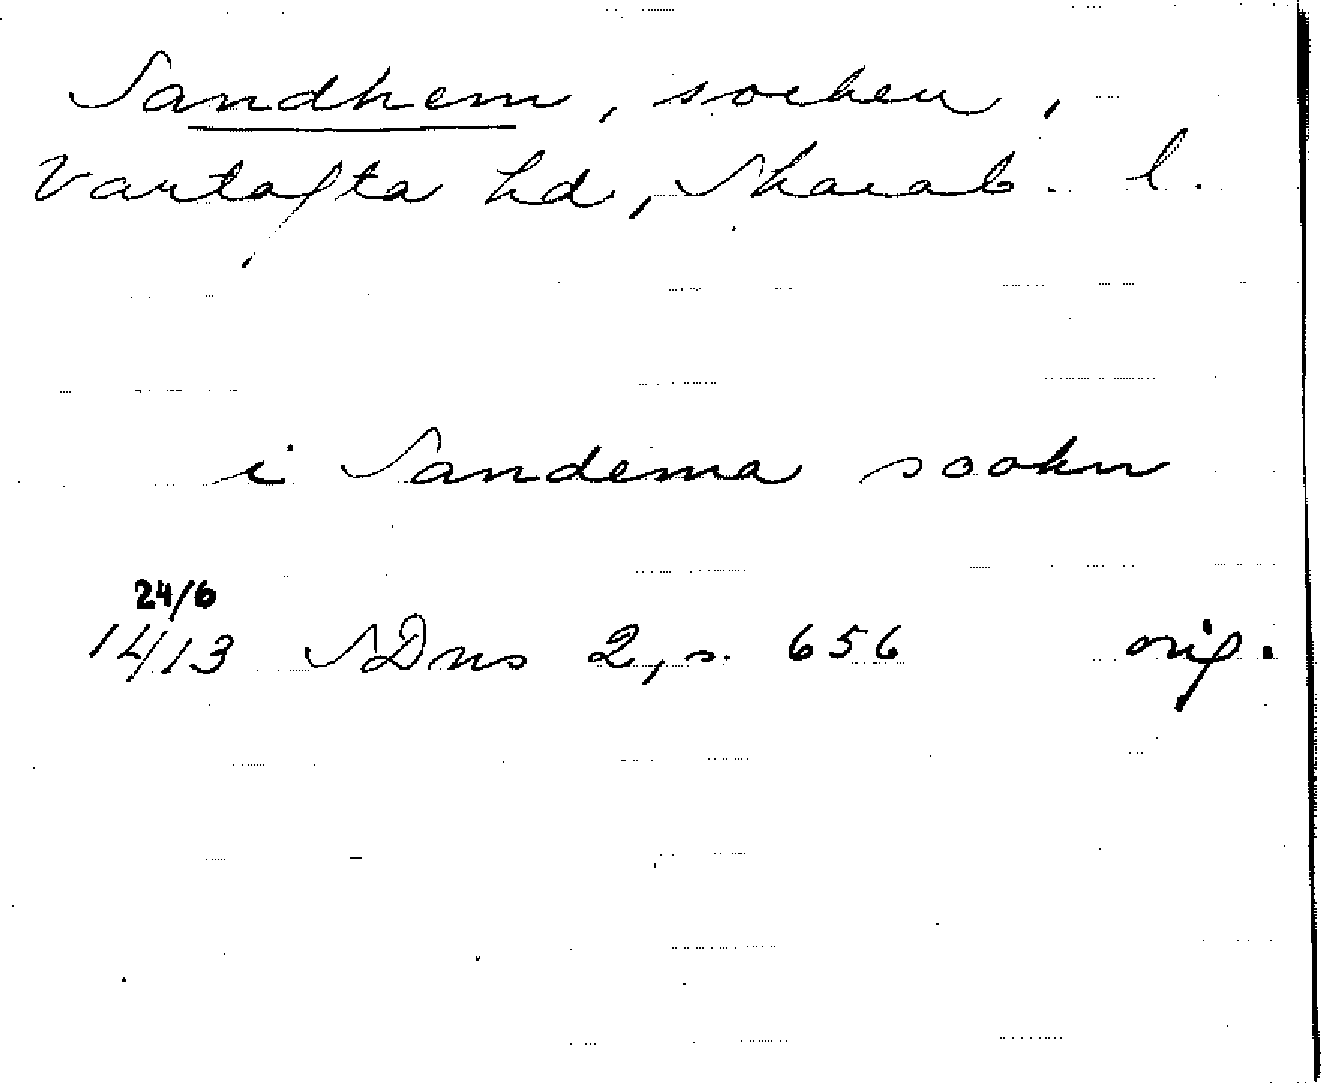 Sandhem, socken,
Vartofta hd, Skarab. l.
i Sandema sookn
24/6
14/13 SDns 2, s. 656 orig.